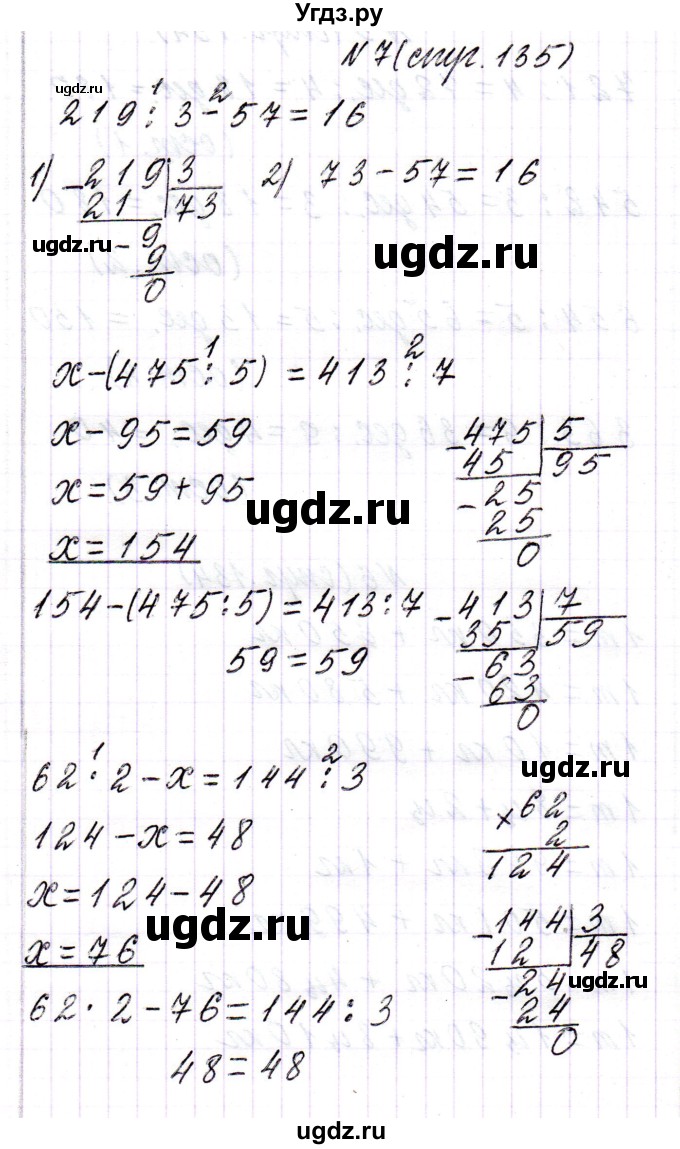 Угдз.ру
N 7 (стр. 135)
ugdz.ru
1 2
219 : 3 - 57 = 16
1) - 219 | 3 2) 73 - 57 = 16
21 73
ugdz.ru ugdz.ru
- 9
9
0
1 2
x - (475 : 5) = 413 : 7
x - 95 = 59 - 475 | 5
45 95
x = 59 + 95 - 25
ugdz.ru 25
x = 154 0
154 - (475 : 5) = 413 : 7 - 413 | 7
35 59
59 = 59 - 63
63
0
1 2
62 · 2 - x = 144 : 3
ugdz.ru
124 - x = 48 × 62
2
x = 124 - 48 124
ugdz.ru - 144 | 3
x = 76 12 48
ugdz.ru
- 24
62 · 2 - 76 = 144 : 3 24
0
48 = 48
ugdz.ru